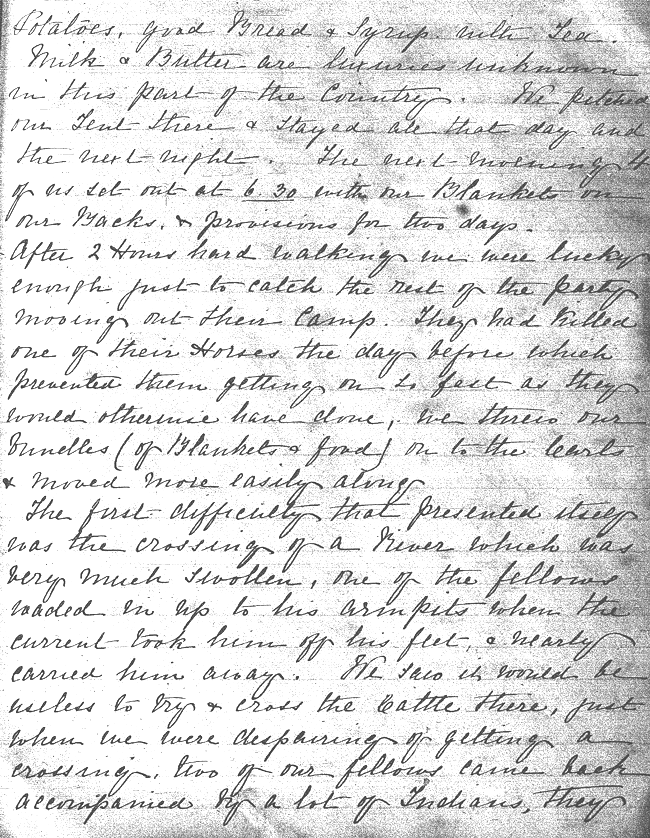 Potatoes, good Bread & Syrup with Tea.
Milk & Butter are luxuries unknown
in this part of the Country. We pitched
our Tent there & stayed all that day and
the next night. The next morning 4
of us set out at 6 30 with our Blankets on
our Backs, & provisions for two days.
After 2 Hours hard walking we were lucky
enough just to catch the rest of the party
moving out their Camp. They had Killed
one of their Horses the day before which
prevented them getting on so fast as they
would otherwise have done, we threw our
bundles (of Blankets & food) on to the Carts
& moved more easily along
The first difficulty that presented itself
was the crossing of a River which was
very much swollen, one of the fellows
waded in up to his armpits when the
current took him off his feet, & nearly
carried him away. We saw it would be
useless to try & cross the Cattle there, just
when we were despairing of getting a
crossing, two of our fellows came back
accompanied by a lot of Indians, they